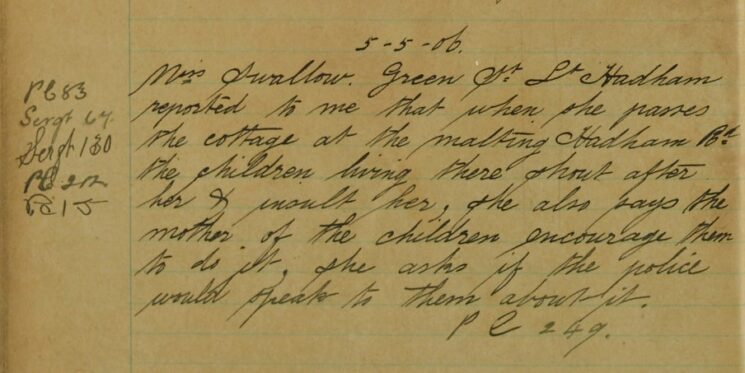 5-5-06.
PC 83
Sergt 64.
Sergt 130
PC 212
PC 15
Mrs Swallow. Green St Lt Hadham
reported to me that when she passes
the cottage at the malting Hadham Rd
the children living there shout after
her & insult her, she also says the
mother of the children encourage them
to do it, she asks if the police
would speak to them about it.
P C 249.